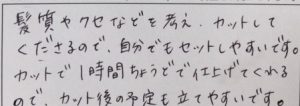 髪質やクセなどを考え、カットして
くださるので、自分でもセットしやすいです。
カットで1時間ちょうどで仕上げてくれる
ので、カット後の予定も立てやすいです。